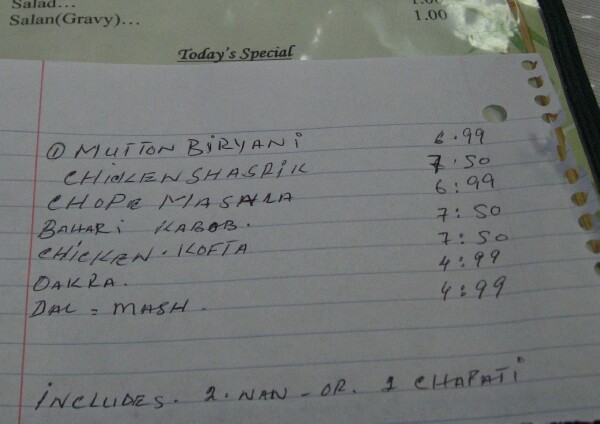 Salad... 1.00
Salan(Gravy)... 1.00
Today's Special
① MUTTON BIRYANI 6.99
CHICKEN SHASRIK 7.50
CHOPE MASALA 6:99
BAHARI KABOB. 7:50
CHICKEN. KOFTA 7:50
OAKRA. 4:99
DAL = MASH. 4:99
INCLUDES. 2. NAN - OR. 1 CHAPATI